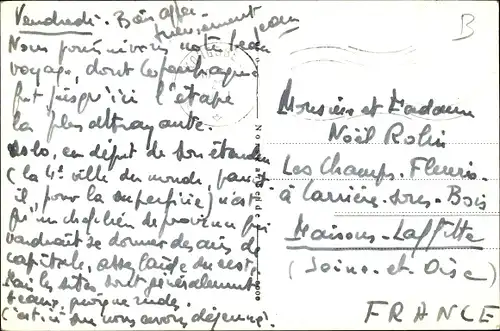 Vendredi. Bien affec-
tueusement
Jean
Nous poursuivons notre beau
voyage, dont Copenhague
fut jusqu'ici l'étape
la plus attrayante.
Oslo, en dépit de son étendue
(la 4e ville du monde, paraît-
il, pour la superficie) n'est
qu'un chef-lieu de province qui
voudrait se donner des airs de
capitale, assez laide du reste.
Mais les sites sont généralement
beaux, quoique rudes.
(C'est ici que nous avons déjeuné).
B
Monsieur et Madame
Noël Robin
Les Champs-Fleuris
à Carrière-sous-Bois
Maisons-Laffitte
(Seine-et-Oise)
FRANCE